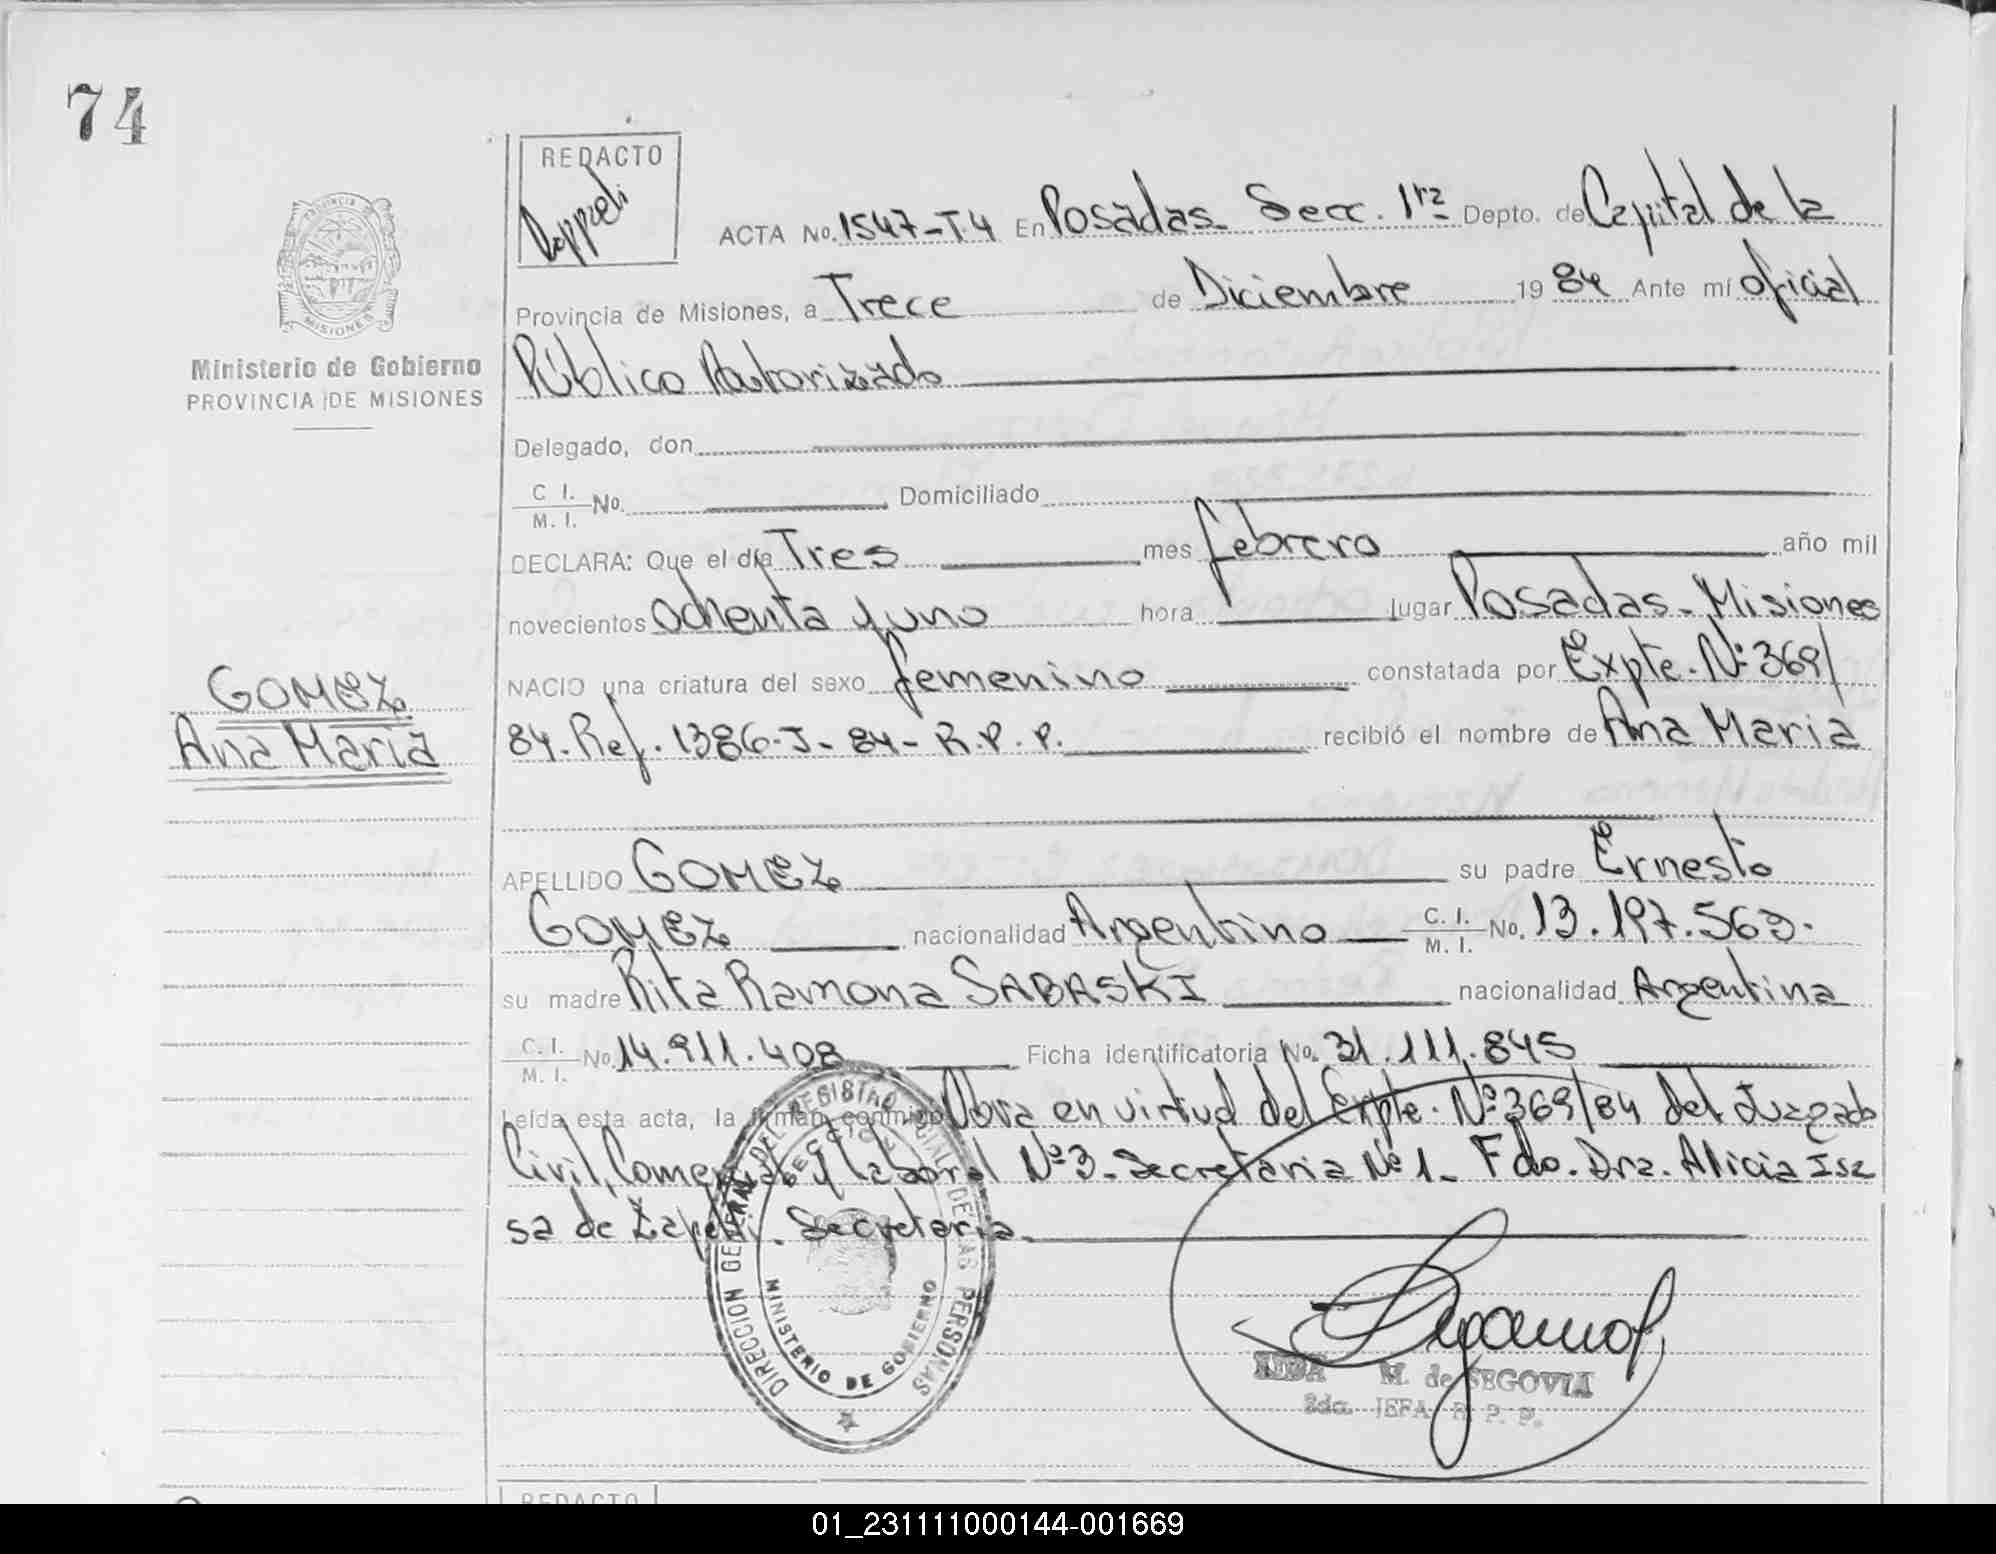 74
REDACTO
ACTA No. 1547-T.4 En Posadas Secc. 1ra Depto. de Capital de la
Provincia de Misiones, a Trece de Diciembre 1984 Ante mí Oficial
Público Autorizado
PROVINCIA
MISIONES
Ministerio de Gobierno
PROVINCIA DE MISIONES
Delegado, don
C. I.
M. I. No. Domiciliado
DECLARA: Que el día Tres mes febrero año mil
novecientos ochenta y uno hora lugar Posadas - Misiones
NACIO una criatura del sexo femenino constatada por Expte. Nº 369/
84. Ref. 1386-J-84-R.P.P. recibió el nombre de Ana Maria
GOMEZ
Ana Maria
APELLIDO GOMEZ su padre Ernesto
GOMEZ nacionalidad Argentino C. I. M. I. No. 13.197.563.
su madre Rita Ramona SABASKI nacionalidad Argentina
C. I. M. I. No. 14.911.408 Ficha identificatoria No. 31.111.845
Leída esta acta, la firman conmigo Obra en virtud del Expte. Nº 369/84 del Juzgado
Civil, Comercial y Laboral Nº 3 - Secretaria Nº 1 - Fdo. Dra. Alicia Isa
sa de Zapelli. Secretaria.
DIRECCION GENERAL DEL REGISTRO DE LAS PERSONAS
MINISTERIO DE GOBIERNO
M. de SEGOVIA
2da. JEFA R. P. P.
REDACTO
01_231111000144-001669